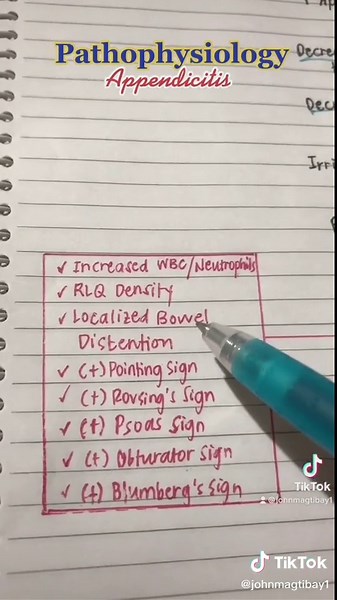 Pathophysiology
Appendicitis
Decre
Dec
Irri
✓ Increased WBC/Neutrophils
✓ RLQ Density
✓ Localized Bowel
Distention
✓ (+) Pointing Sign
✓ (+) Rovsing's Sign
✓ (+) Psoas Sign
✓ (+) Obturator Sign
✓ (+) Blumberg's Sign
TikTok
@johnmagtibay1
TikTok
@johnmagtibay1